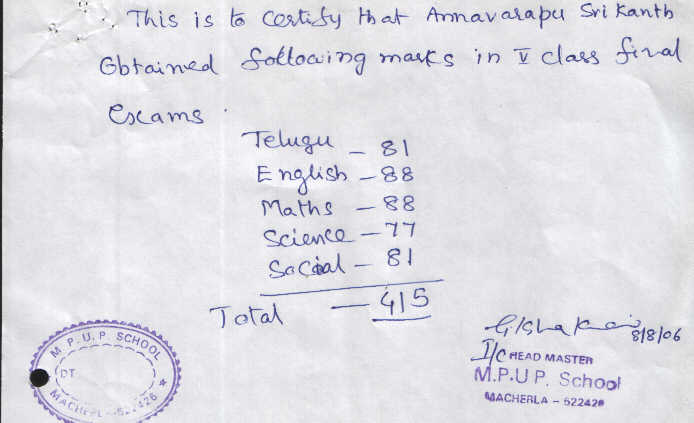 This is to certify that Annavarapu Srikanth
Obtained following marks in V class final
exams.
Telugu - 81
English - 88
Maths - 88
Science - 77
Social - 81
Total - 415
8/8/06
I/C HEAD MASTER
M.P.U P. School
MACHERLA - 522426
M. P. U. P. SCHOOL
DT
522426